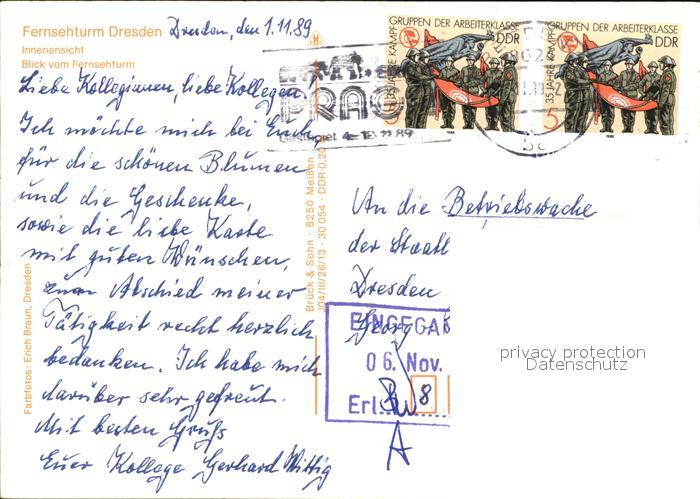 Fernsehturm Dresden
Innenansicht
Blick vom Fernsehturm
Dresden, den 1.11.89
Liebe Kolleginnen, liebe Kollegen,
Ich möchte mich bei Euch
für die schönen Blumen
und die Geschenke,
sowie die liebe Karte
mit guten Wünschen,
zum Abschied meiner
Tätigkeit recht herzlich
bedanken. Ich habe mich
darüber sehr gefreut.
Mit besten Gruß
Euer Kollege Gerhard Wittig
Farbfotos: Erich Braun, Dresden
Brück & Sohn · 8250 Meißen
J04/III/26/13 · 30 054 · DDR 0,20
PRAG
Gastspiel 4.-19.11.89
GRUPPEN DER ARBEITERKLASSE
DDR
35 JAHRE KAMPF
5
1988
GRUPPEN DER ARBEITERKLASSE
DDR
35 JAHRE KAMPF
5
1988
An die Betriebswache
der Staatl
Dresden
Georg
EINGEGAN
06. Nov.
Erl.
8
A
privacy protection
Datenschutz